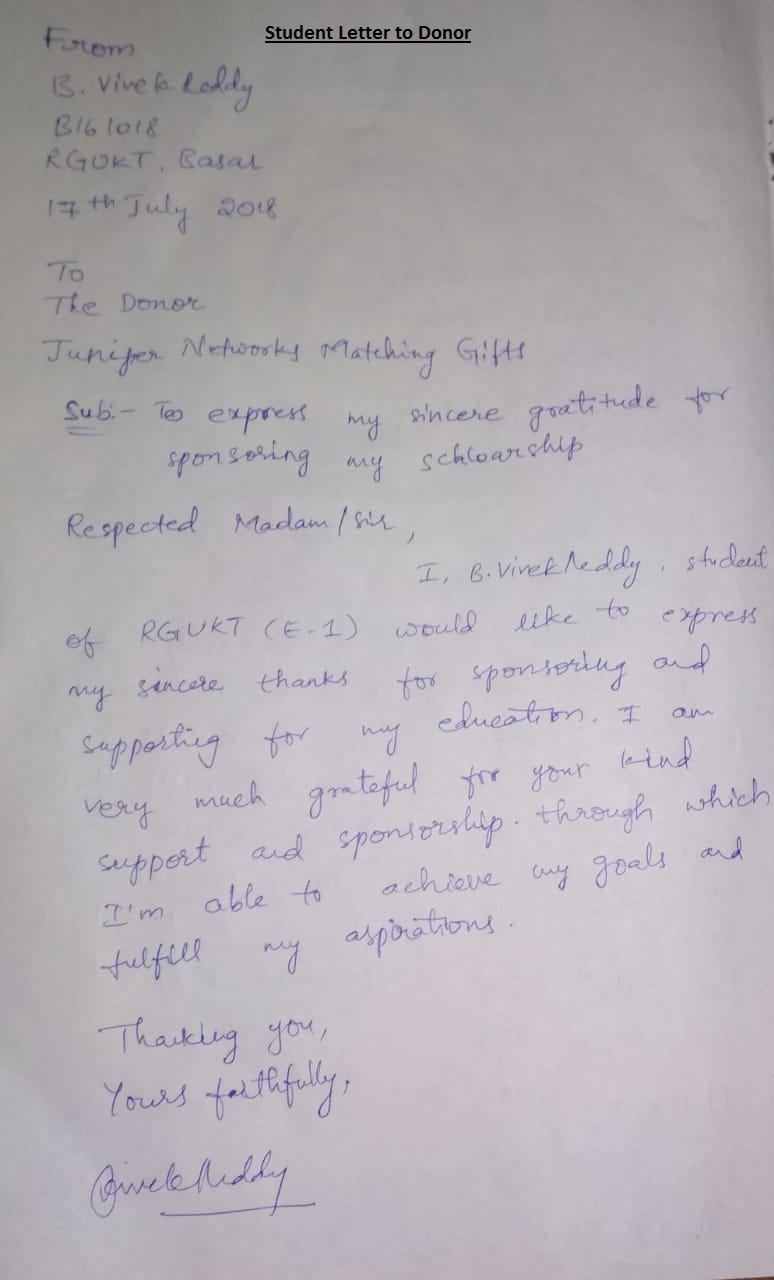 Student Letter to Donor
From
B. Vivek Reddy
B161018
RGUKT, Basar
17th July 2018
To
The Donor
Juniper Networks Matching Gifts
Sub:- To express my sincere gratitude for
sponsoring my schloarship
Respected Madam/sir,
I, B. Vivek Reddy, student
of RGUKT (E-1) would like to express
my sincere thanks for sponsoring and
supporting for my education. I am
very much grateful for your kind
support and sponsorship. through which
I'm able to achieve my goals and
fulfill my aspirations.
Thanking you,
Yours faithfully,
Vivek Reddy